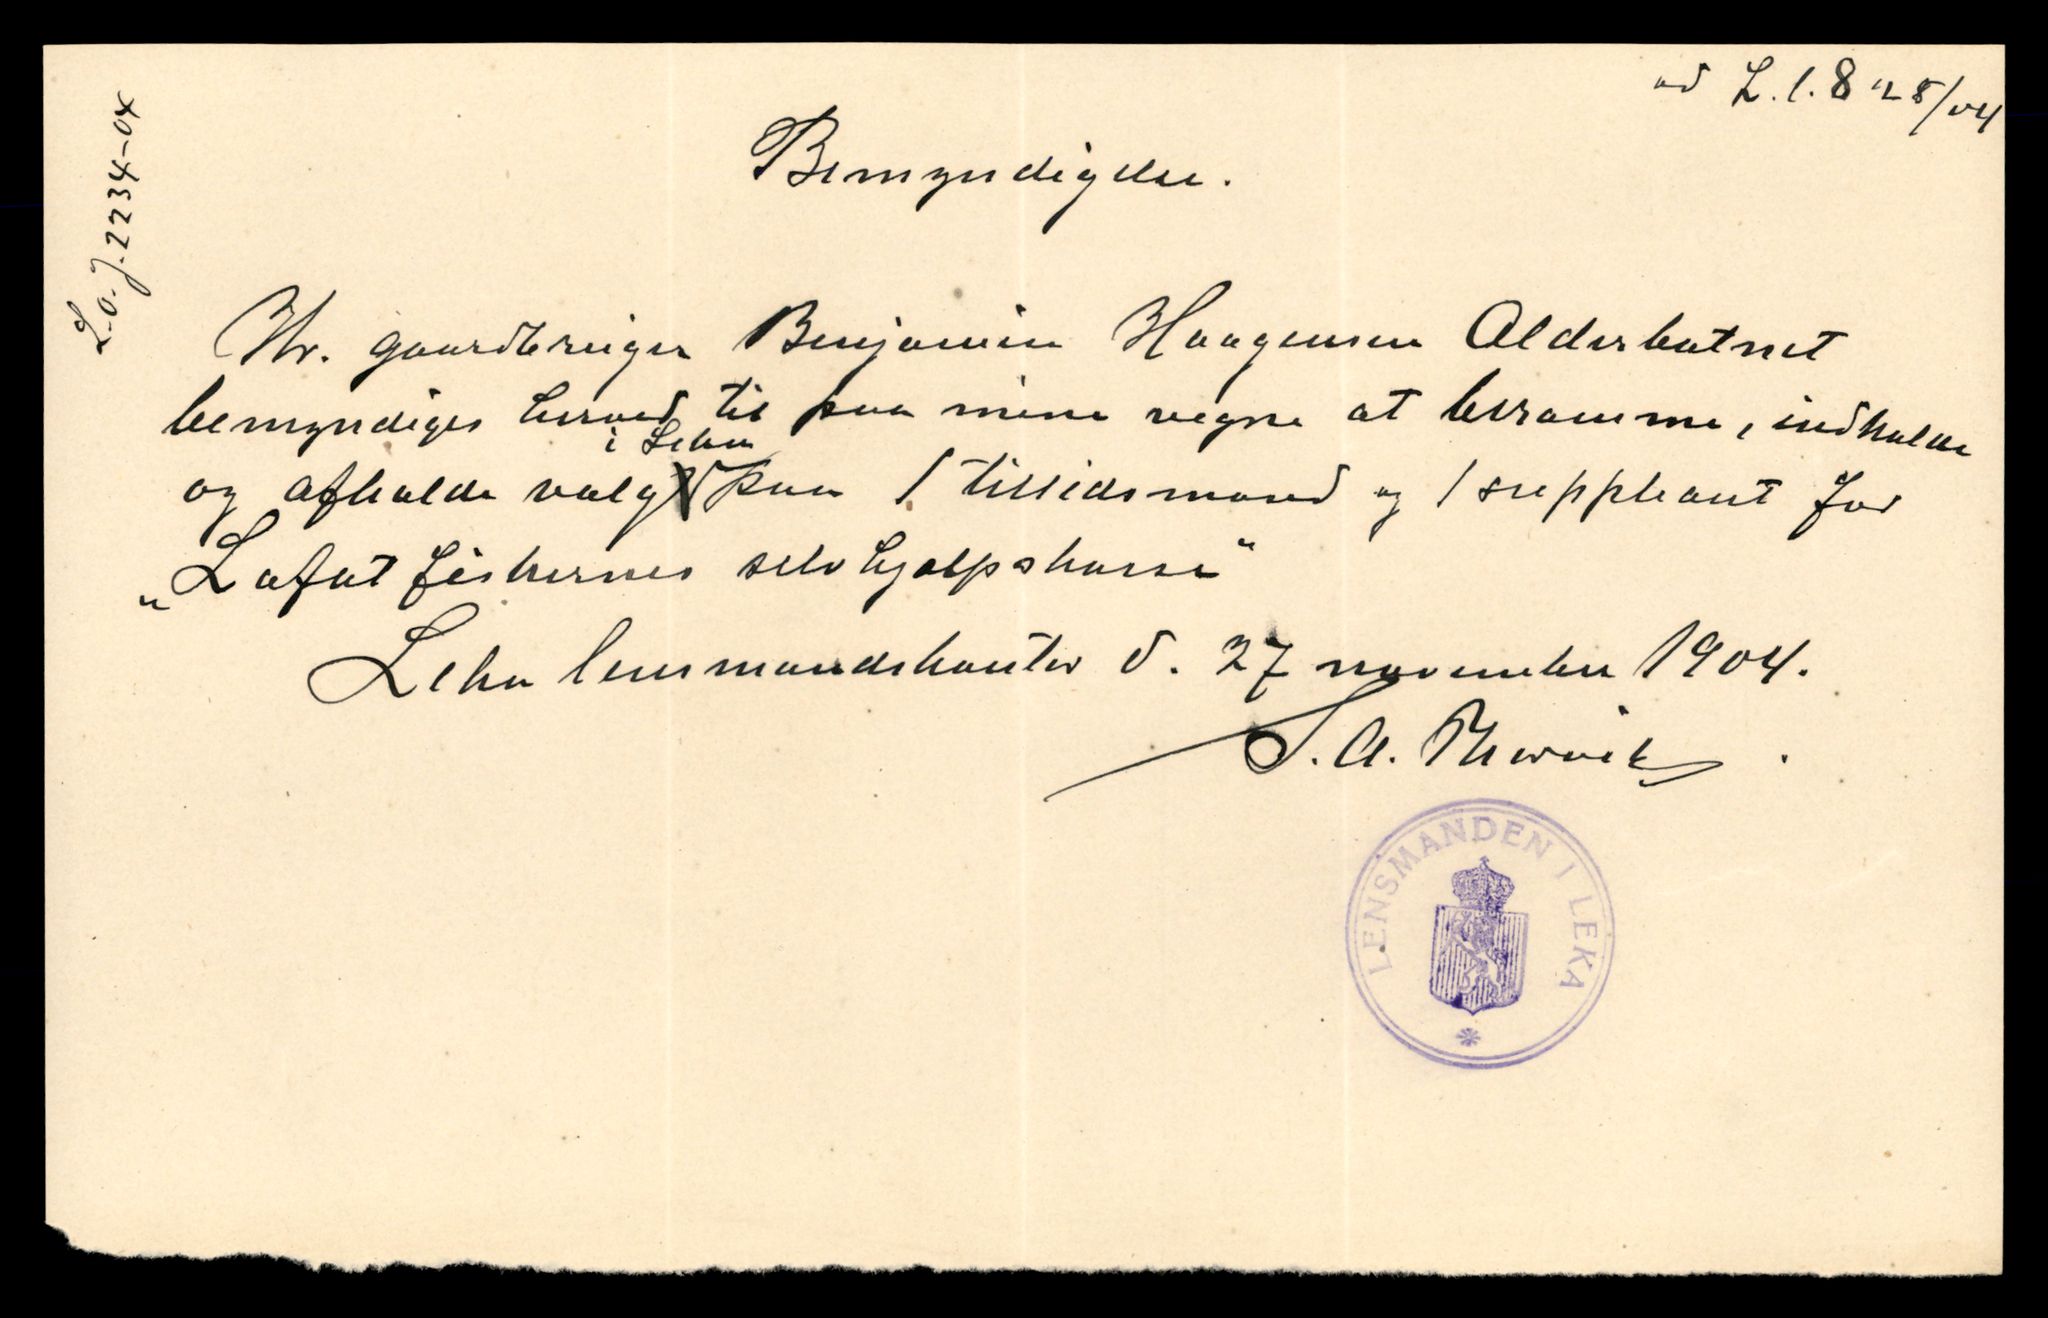 ad L.l. 828/04
L.o.J. 2234-04
Bemyndigelse.
Hr. gaardbruger Benjamin Haagensen Alderbotnet
bemyndiges herved til paa mine vegne at beramme, indkalde
og afholde valg i Leka paa 1 tillidsmand og 1 suppleant for
„Lofotfiskernes selvhjælpskasse“
Leka lensmandskontor d. 27 november 1904.
S. A.
LENSMANDEN I LEKA